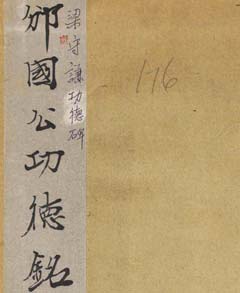 邠國公功德銘
梁守謙功德碑
116